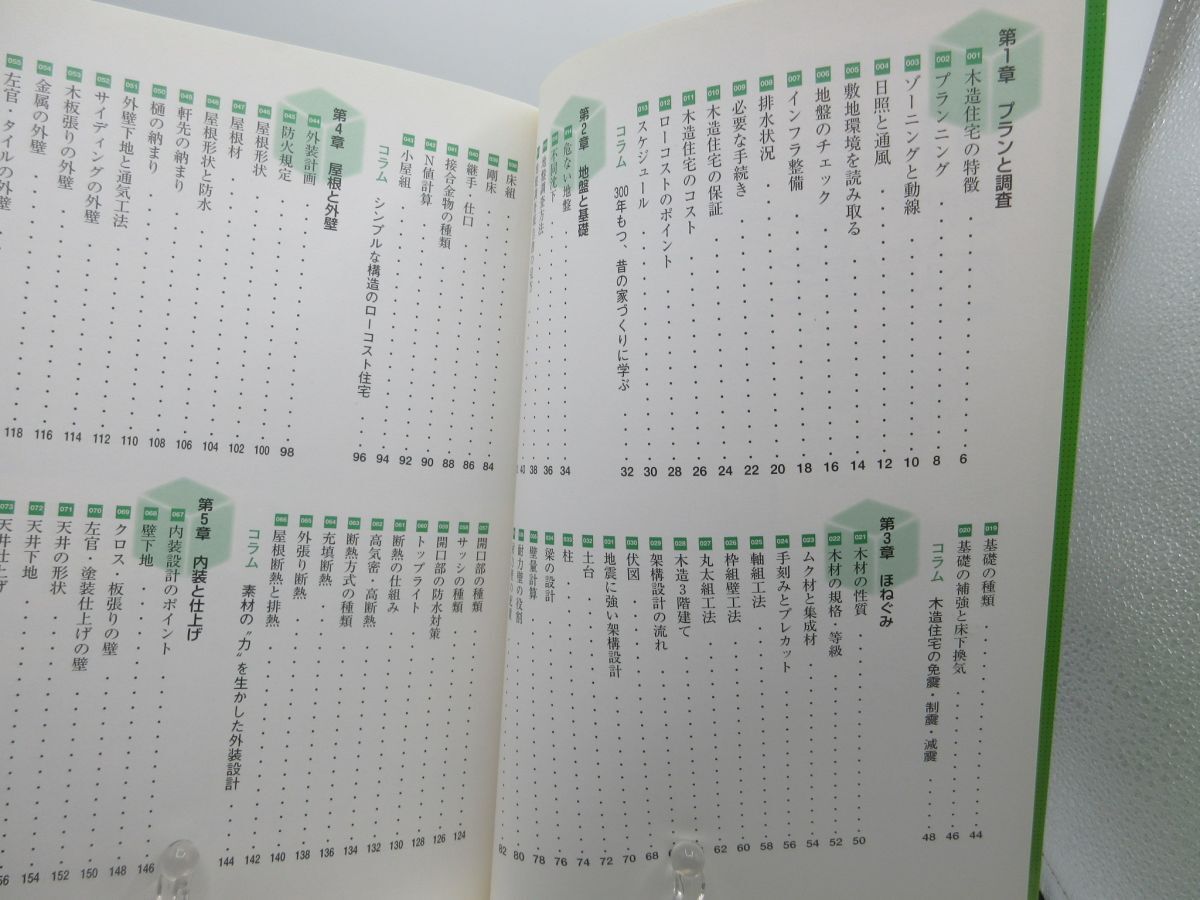 第1章 プランと調査
001 木造住宅の特徴 6
002 プランニング 8
003 ゾーニングと動線 10
004 日照と通風 12
005 敷地環境を読み取る 14
006 地盤のチェック 16
007 インフラ整備 18
008 排水状況 20
009 必要な手続き 22
010 木造住宅の保証 24
011 木造住宅のコスト 26
012 ローコストのポイント 28
013 スケジュール 30
コラム 300年もつ、昔の家づくりに学ぶ 32
第2章 地盤と基礎
014 危ない地盤 34
不同沈下 36
地盤調査方法 38
40
019 基礎の種類 44
020 基礎の補強と床下換気 46
コラム 木造住宅の免震・制震 減震 48
第3章 ほねぐみ
021 木材の性質 50
022 木材の規格・等級 52
023 ムク材と集成材 54
024 手刻みとプレカット 56
025 軸組工法 58
026 枠組壁工法 60
027 丸太組工法 62
028 木造3階建て
029 架構設計の流れ
030 伏図 68
031 地震に強い架構設計 70
032 土台 72
033 柱 74
034 梁の設計 76
035 壁量計算 78
耐力壁の役割 80
82
038 床組 84
039 剛床 86
040 継手・仕口 88
041 接合金物の種類 90
042 N値計算 92
043 小屋組 94
コラム シンプルな構造のローコスト住宅 96
第4章 屋根と外壁
044 外装計画 98
045 防火規定 100
046 屋根形状 102
047 屋根材 104
048 屋根形状と防水 106
049 軒先の納まり 108
050 樋の納まり 110
051 外壁下地と通気工法 112
052 サイディングの外壁 114
053 木板張りの外壁 116
054 金属の外壁 118
055 左官・タイルの外壁
057 開口部の種類 124
058 サッシの種類 126
059 開口部の防水対策 128
060 トップライト 130
061 断熱の仕組み 132
062 高気密・高断熱 134
063 断熱方式の種類 136
064 充填断熱 138
065 外張り断熱 140
066 屋根断熱と排熱 142
コラム 素材の“力”を生かした外装設計 144
第5章 内装と仕上げ
067 内装設計のポイント 146
068 壁下地 148
069 クロス・板張りの壁 150
070 左官・塗装仕上げの壁 152
071 天井の形状 154
072 天井下地 56
073 天井仕上げ